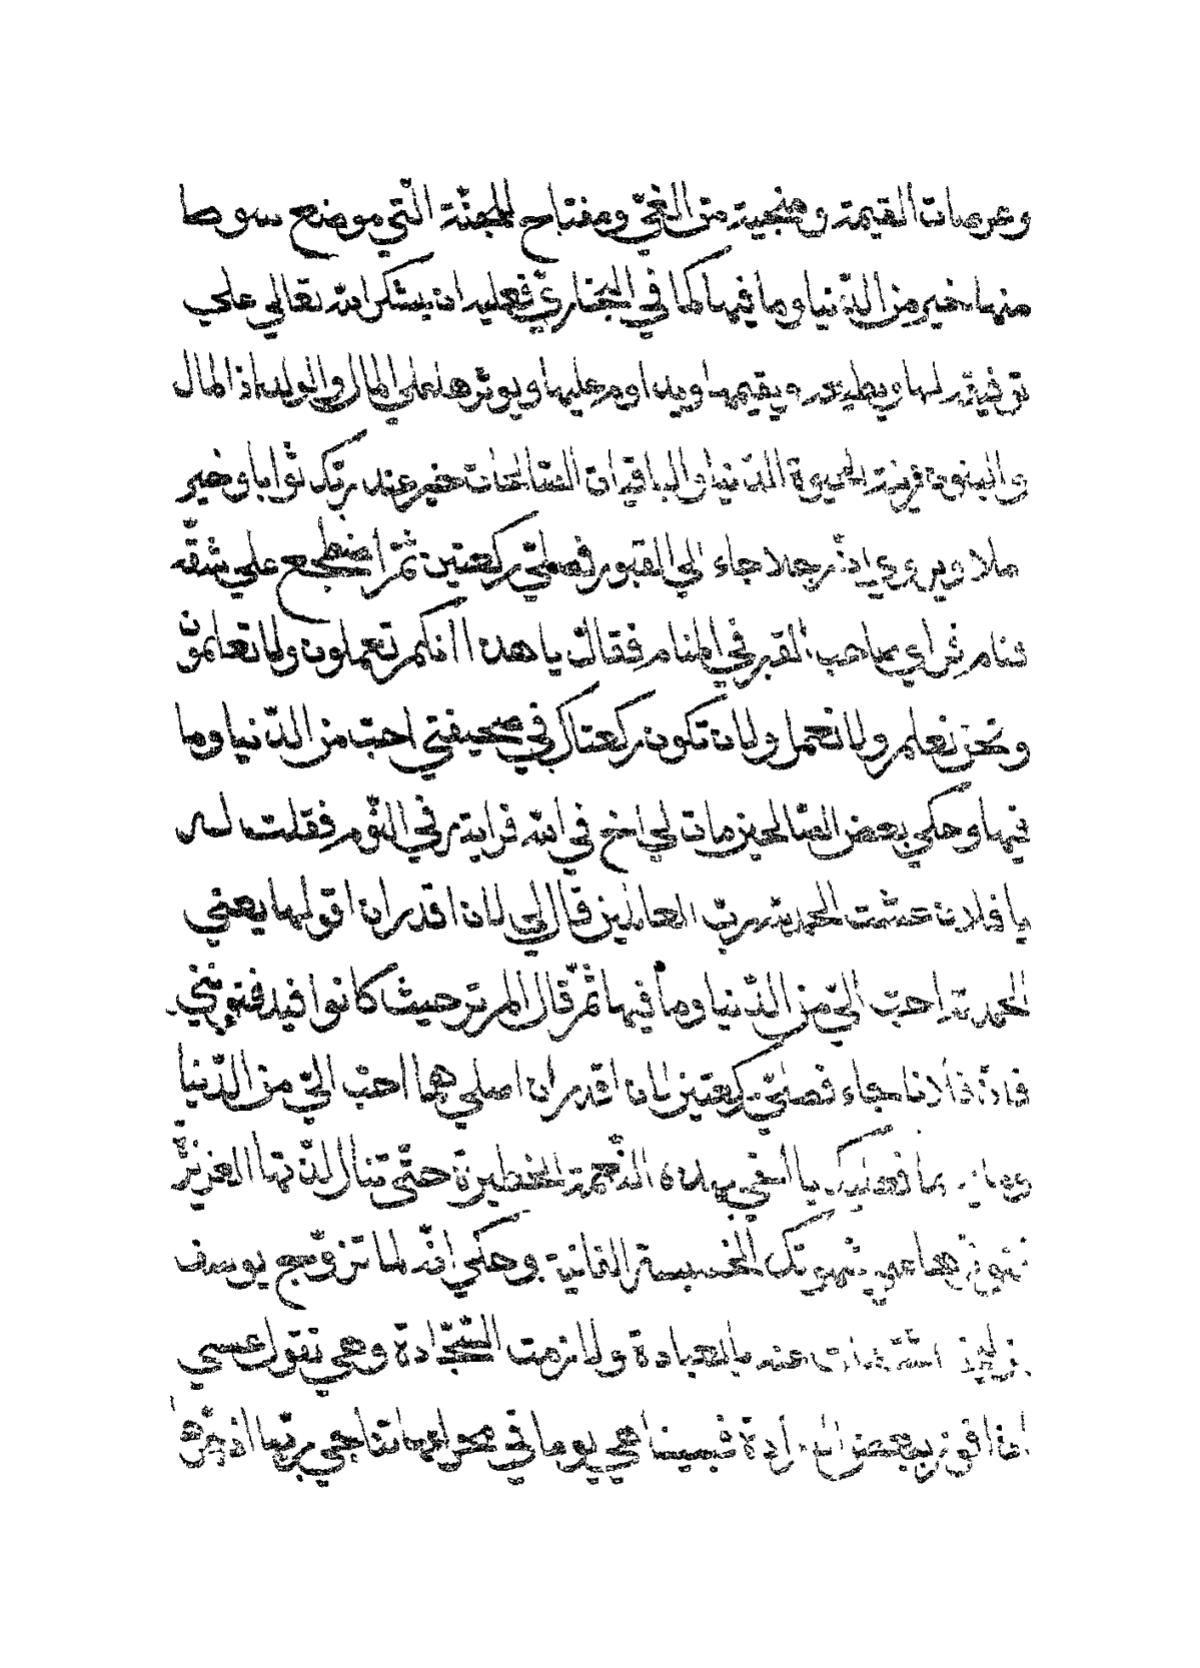 وعرصات القيمة ومنجية من الغيّ ومفتاح للجنّة الّتي موضع سوط
منها خير من الدّنيا وما فيها كما في البخاريّ فعليه ان يشكر الله تعالي علي
توفيقه لها ويطيعه ويقيمها ويداوم عليها ويوثرها علي المال والولد اذ المال
والبنون زينة الحيوة الدّنيا والباقيات الصّالحات خير عند ربّك ثوابا وخير
ملا ويروي انّ رجلا جاء الي القبور فصلّي ركعتين ثمّ اضطجع علي شقّه
فنام فراي صاحب القبر في المنام فقال يا هذا انكم تعملون ولا تعلمون
ونحن نعلم ولا نعمل ولان تكون ركعتاك في صحيفتي احبّ من الدّنيا وما
فيها وحكي بعض الصّالحين مات لي اخ في الله فرايته في النّوم فقلت له
يا فلان عشت الحمد لله ربّ العالمين قال لي لان اقدر ان اقولها يعني
الحمد لله احبّ اليّ من الدّنيا وما فيها ثمّ قال الم تر حيث كانوا فيدفنونني
فانّ فلانا جاء فصلّي ركعتين لان اقدر ان اصلّيهما احبّ اليّ من الدّنيا
وما فيها فعليك يا اخي بهذه النّعمة الخطيرة حتّي تنال لذّتها العزيزة
تؤثرها علي شهوتك الخسيسة الفانية وحكي انّه لما تزوّج يوسف
زليخا اشتغلت عنه بالعبادة ولازمت السّجّادة وهي تقول عسي
ان افوز ببعض الارادة فبينما هي يوما في محرابها تناجي ربّها اذ